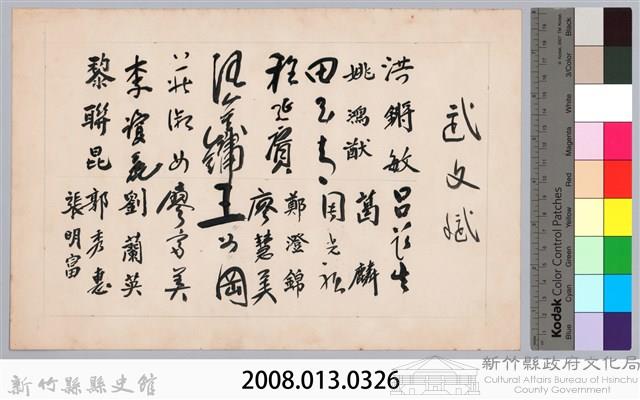 武文斌
洪鏘敏 呂芝生
姚鴻猷 葛麟
田玉青 周光弘
程延賓 鄭澄錦
廖慧美
汪公鋪 王公岡
莊淑女 廖富美
李瓊花 劉蘭英
黎聯昆 郭彥惠
張明富
Kodak Color Control Patches
Blue
Cyan
Green
Yellow
Red
Magenta
White
3/Color
Black
新竹縣縣史館
2008.013.0326
新竹縣政府文化局
Cultural Affairs Bureau of Hsinchu
County Government